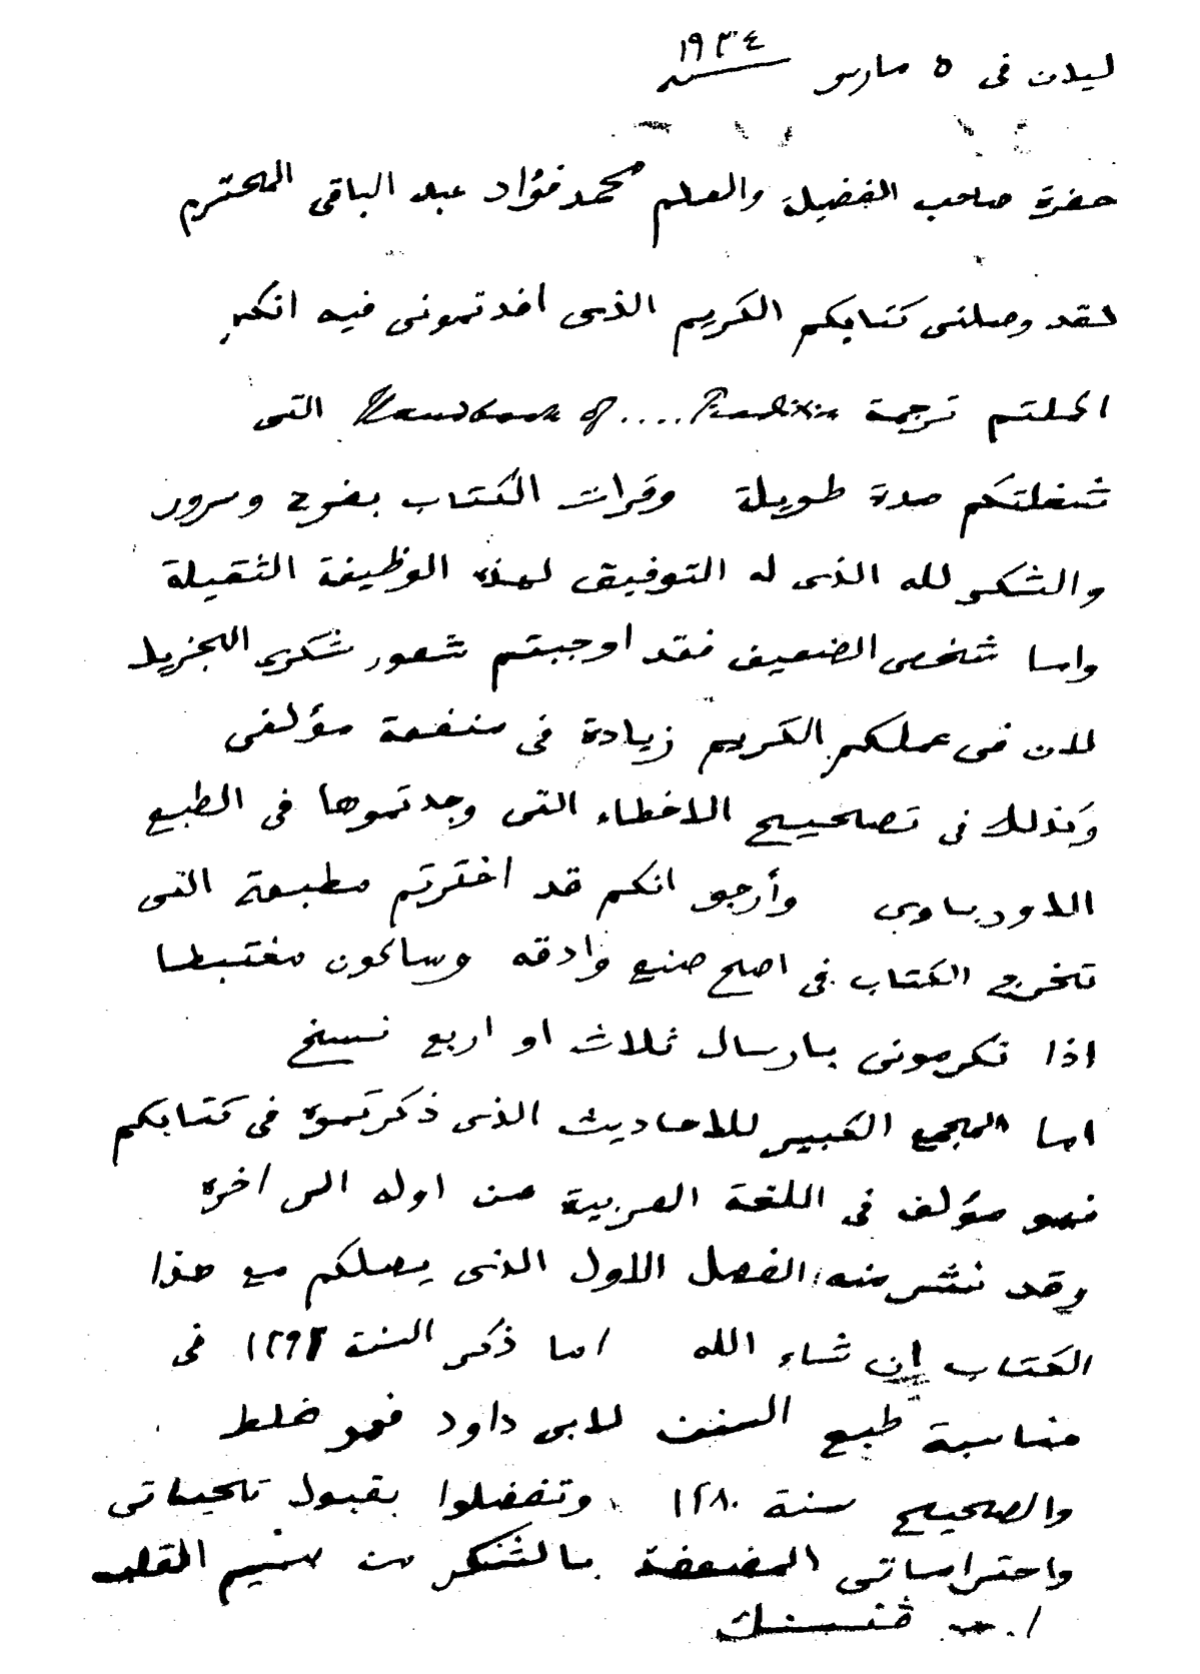 ليدن فى ٥ مارس سنة ١٩٣٤
حضرة صاحب الفضيلة والعلم محمد فؤاد عبد الباقى المحترم
لقد وصلنى كتابكم الكريم الذى افدتمونى فيه انكم
اكملتم ترجمة Handbook of .... Tradition التى
شغلتكم مدة طويلة وقرات الكتاب بفرح وسرور
والشكر لله الذى له التوفيق لهذه الوظيفة الثقيلة
واما شخصى الضعيف فقد اوجبتم شعور شكرى الجزيل
لان فى عملكم الكريم زيادة فى منفعة مؤلفى
وكذلك فى تصحيح الاخطاء التى وجدتموها فى الطبع
الاورباوى وأرجو انكم قد اخترتم مطبعة التى
تخرج الكتاب فى اصح صنع وادقه وساكون مغتبطا
اذا تكرمونى بارسال ثلاث او اربع نسخ
اما المجمع الكبير للاحاديث الذى ذكرتموه فى كتابكم
فهو مؤلف فى اللغة العربية من اوله الى اخره
وقد نشر منه الفصل الاول الذى يصلكم مع هذا
الكتاب إن شاء الله اما ذكر السنة ١٢٩٣ فى
مناسبة طبع السنن لابى داود فهو غلط
والصحيح سنة ١٢٨٠ وتفضلوا بقبول تحياتى
واحتراماتى المضعفة بالشكر من صميم القلب
ا. ى. ڤنسنك